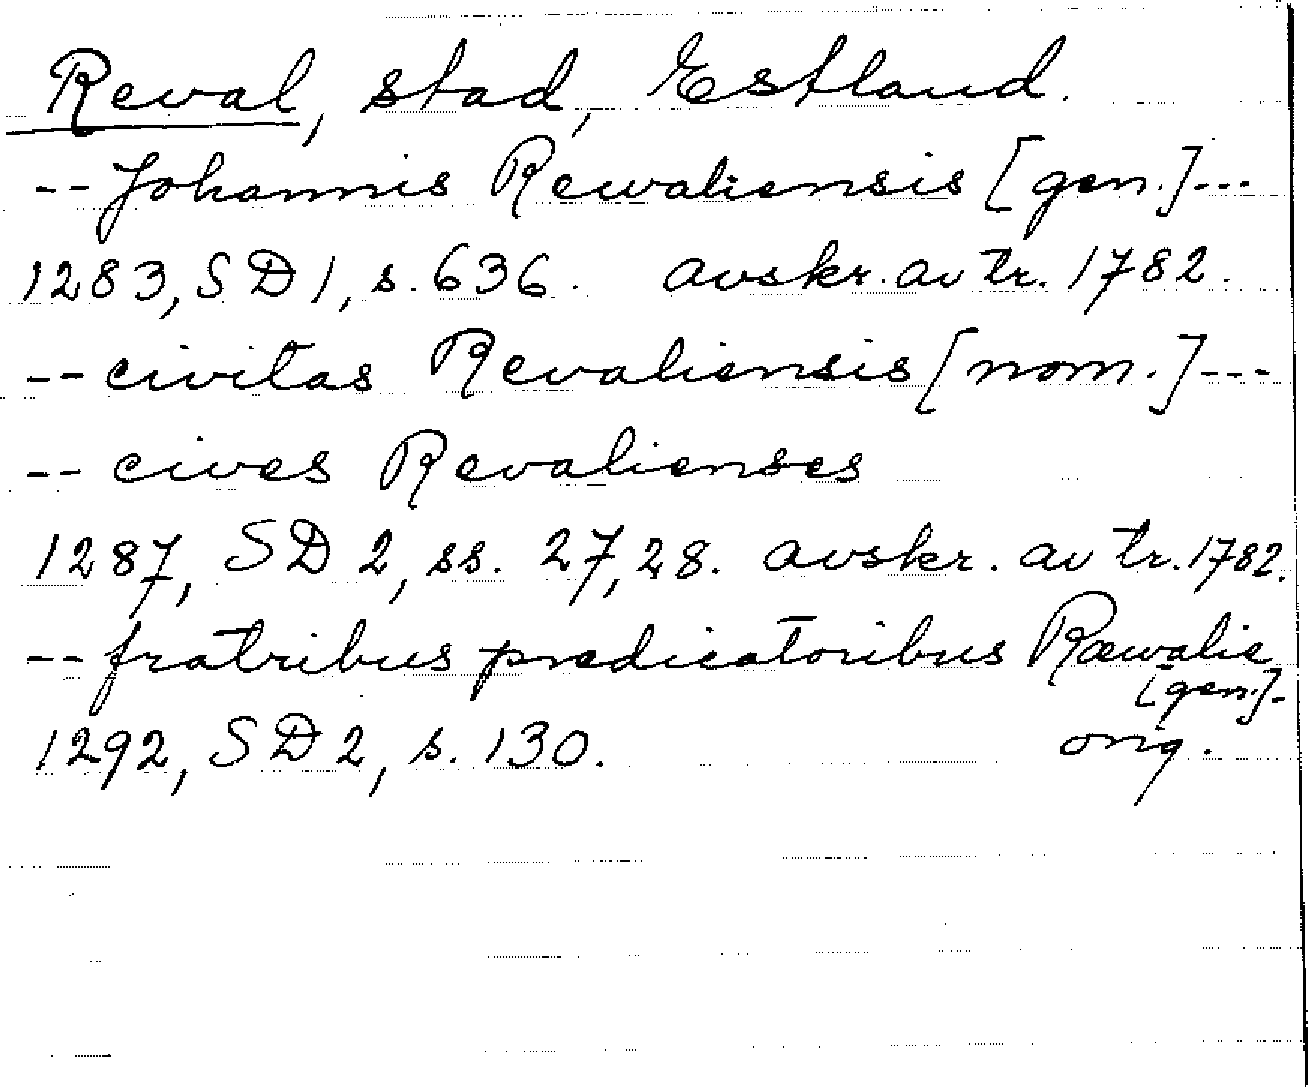 Reval, stad, Estland.
-- Johannis Rewaliensis [gen.]---
1283, SD 1, s. 636. avskr. av tr. 1782.
-- civitas Revaliensis [nom.]---
-- cives Revalienses
1287, SD 2, ss. 27, 28. avskr. av tr. 1782.
-- fratribus predicatoribus Ræwalie
[gen.]-
1292, SD 2, s. 130. orig.